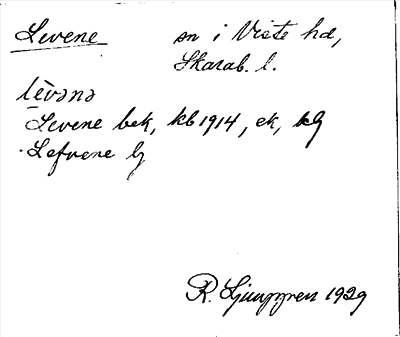 Levene sn i Viste hd,
Skarab. l.
lèvənə
Levene bek, kb 1914, ek, kg
Lefvene lj
R. Ljunggren 1929